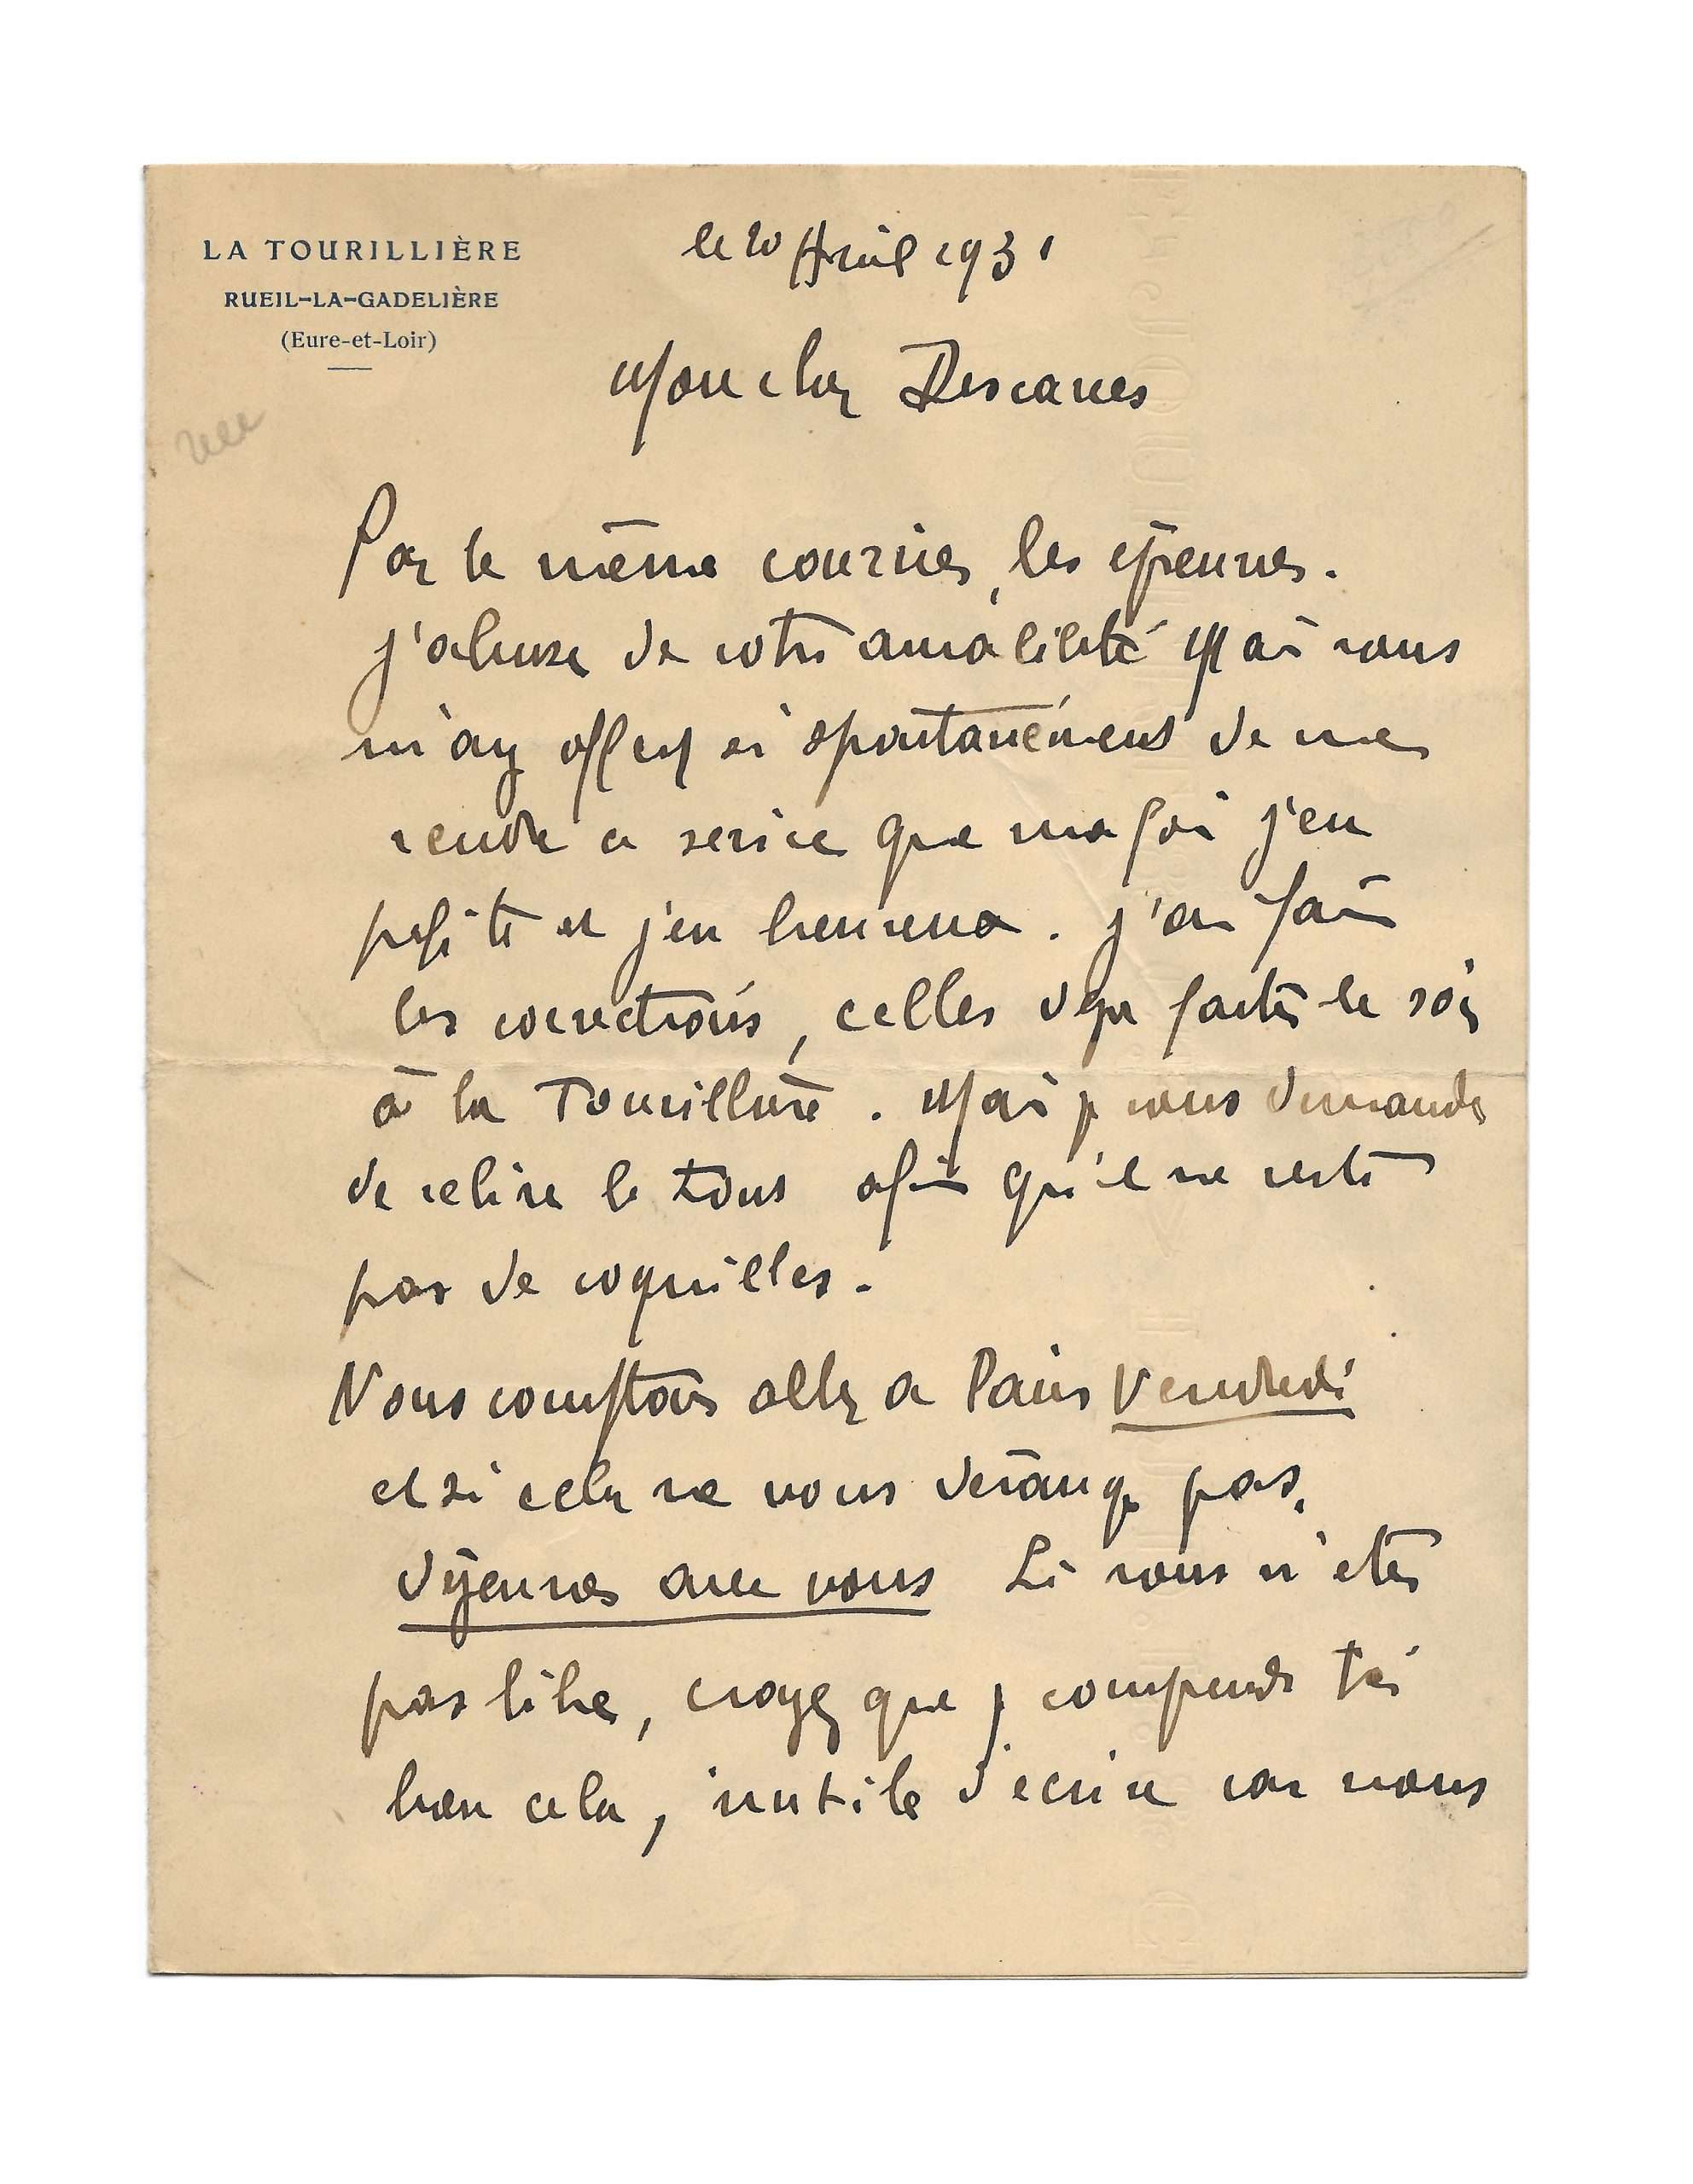 LA TOURILLIÈRE
RUEIL-LA-GADELIÈRE
(Eure-et-Loir)
le 20 Avril 1931
Mon cher Descaves
Par le même courrier, les épreuves.
j'abuse de votre amabilité Mais vous
m'avez offert si spontanément de me
rendre ce service que ma foi j'en
profite et j'en heureux. j'ai fait
les corrections, celles déjà faites le soir
à la Tourillière. Mais je vous demande
de relire le tout afin qu'il ne reste
pas de coquilles.
Nous comptons aller a Paris Vendredi
et si cela ne vous dérange pas,
déjeuner avec vous Si vous n'etes
pas libre, croyez que je comprends très
bien cela, inutile d'ecrire car nous